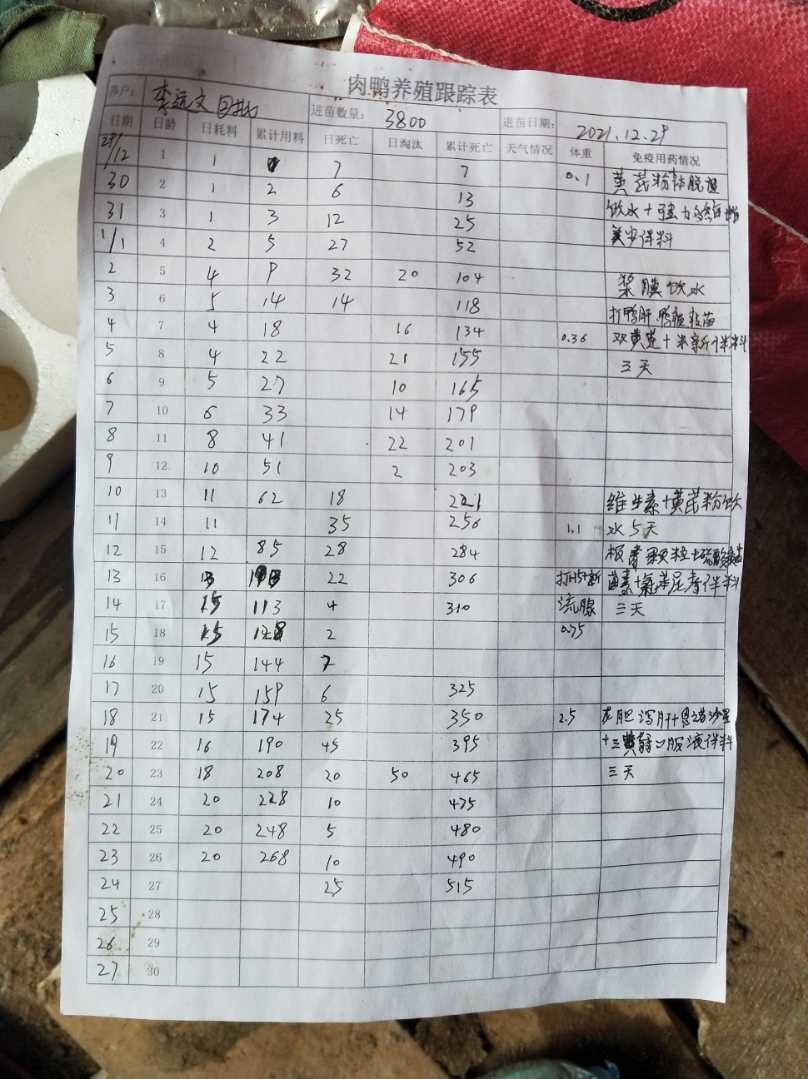 肉鸭养殖跟踪表
养户： 李远文 进苗数量： 3800 进苗日期： 2021.12.29
日期 日龄 日耗料 累计用料 日死亡 日淘汰 累计死亡 天气情况 体重 免疫用药情况
29/12 1 1 7 7 0.1 黄芪粉
30 2 1 2 6 13 饮水+
31 3 1 3 12 25 料
1/1 4 2 5 27 52
2 5 4 9 32 20 104 浆膜饮水
3 6 5 14 14 118 打鸭肝,鸭瘟疫苗
4 7 4 18 16 134 0.36 双黄连+
5 8 4 22 21 155 三天
6 9 5 27 10 165
7 10 6 33 14 179
8 11 8 41 22 201
9 12 10 51 2 203
10 13 11 62 18 221 维生素+黄芪粉饮
11 14 11 35 256 1.1 水5天
12 15 12 85 28 284 板青颗粒+
13 16 22 306 打H5+新 菌素+氟苯尼考伴料
14 17 15 113 4 310 流腺 三天
15 18 15 2 0.75
16 19 15 144 7
17 20 15 159 6 325
18 21 15 174 25 350 2.5 龙胆泻肝+恩诺沙星
19 22 16 190 45 395 +口服液伴料
20 23 18 208 20 50 465 三天
21 24 20 228 10 475
22 25 20 248 5 480
23 26 20 268 10 490
24 27 25 515
25 28
26 29
27 30